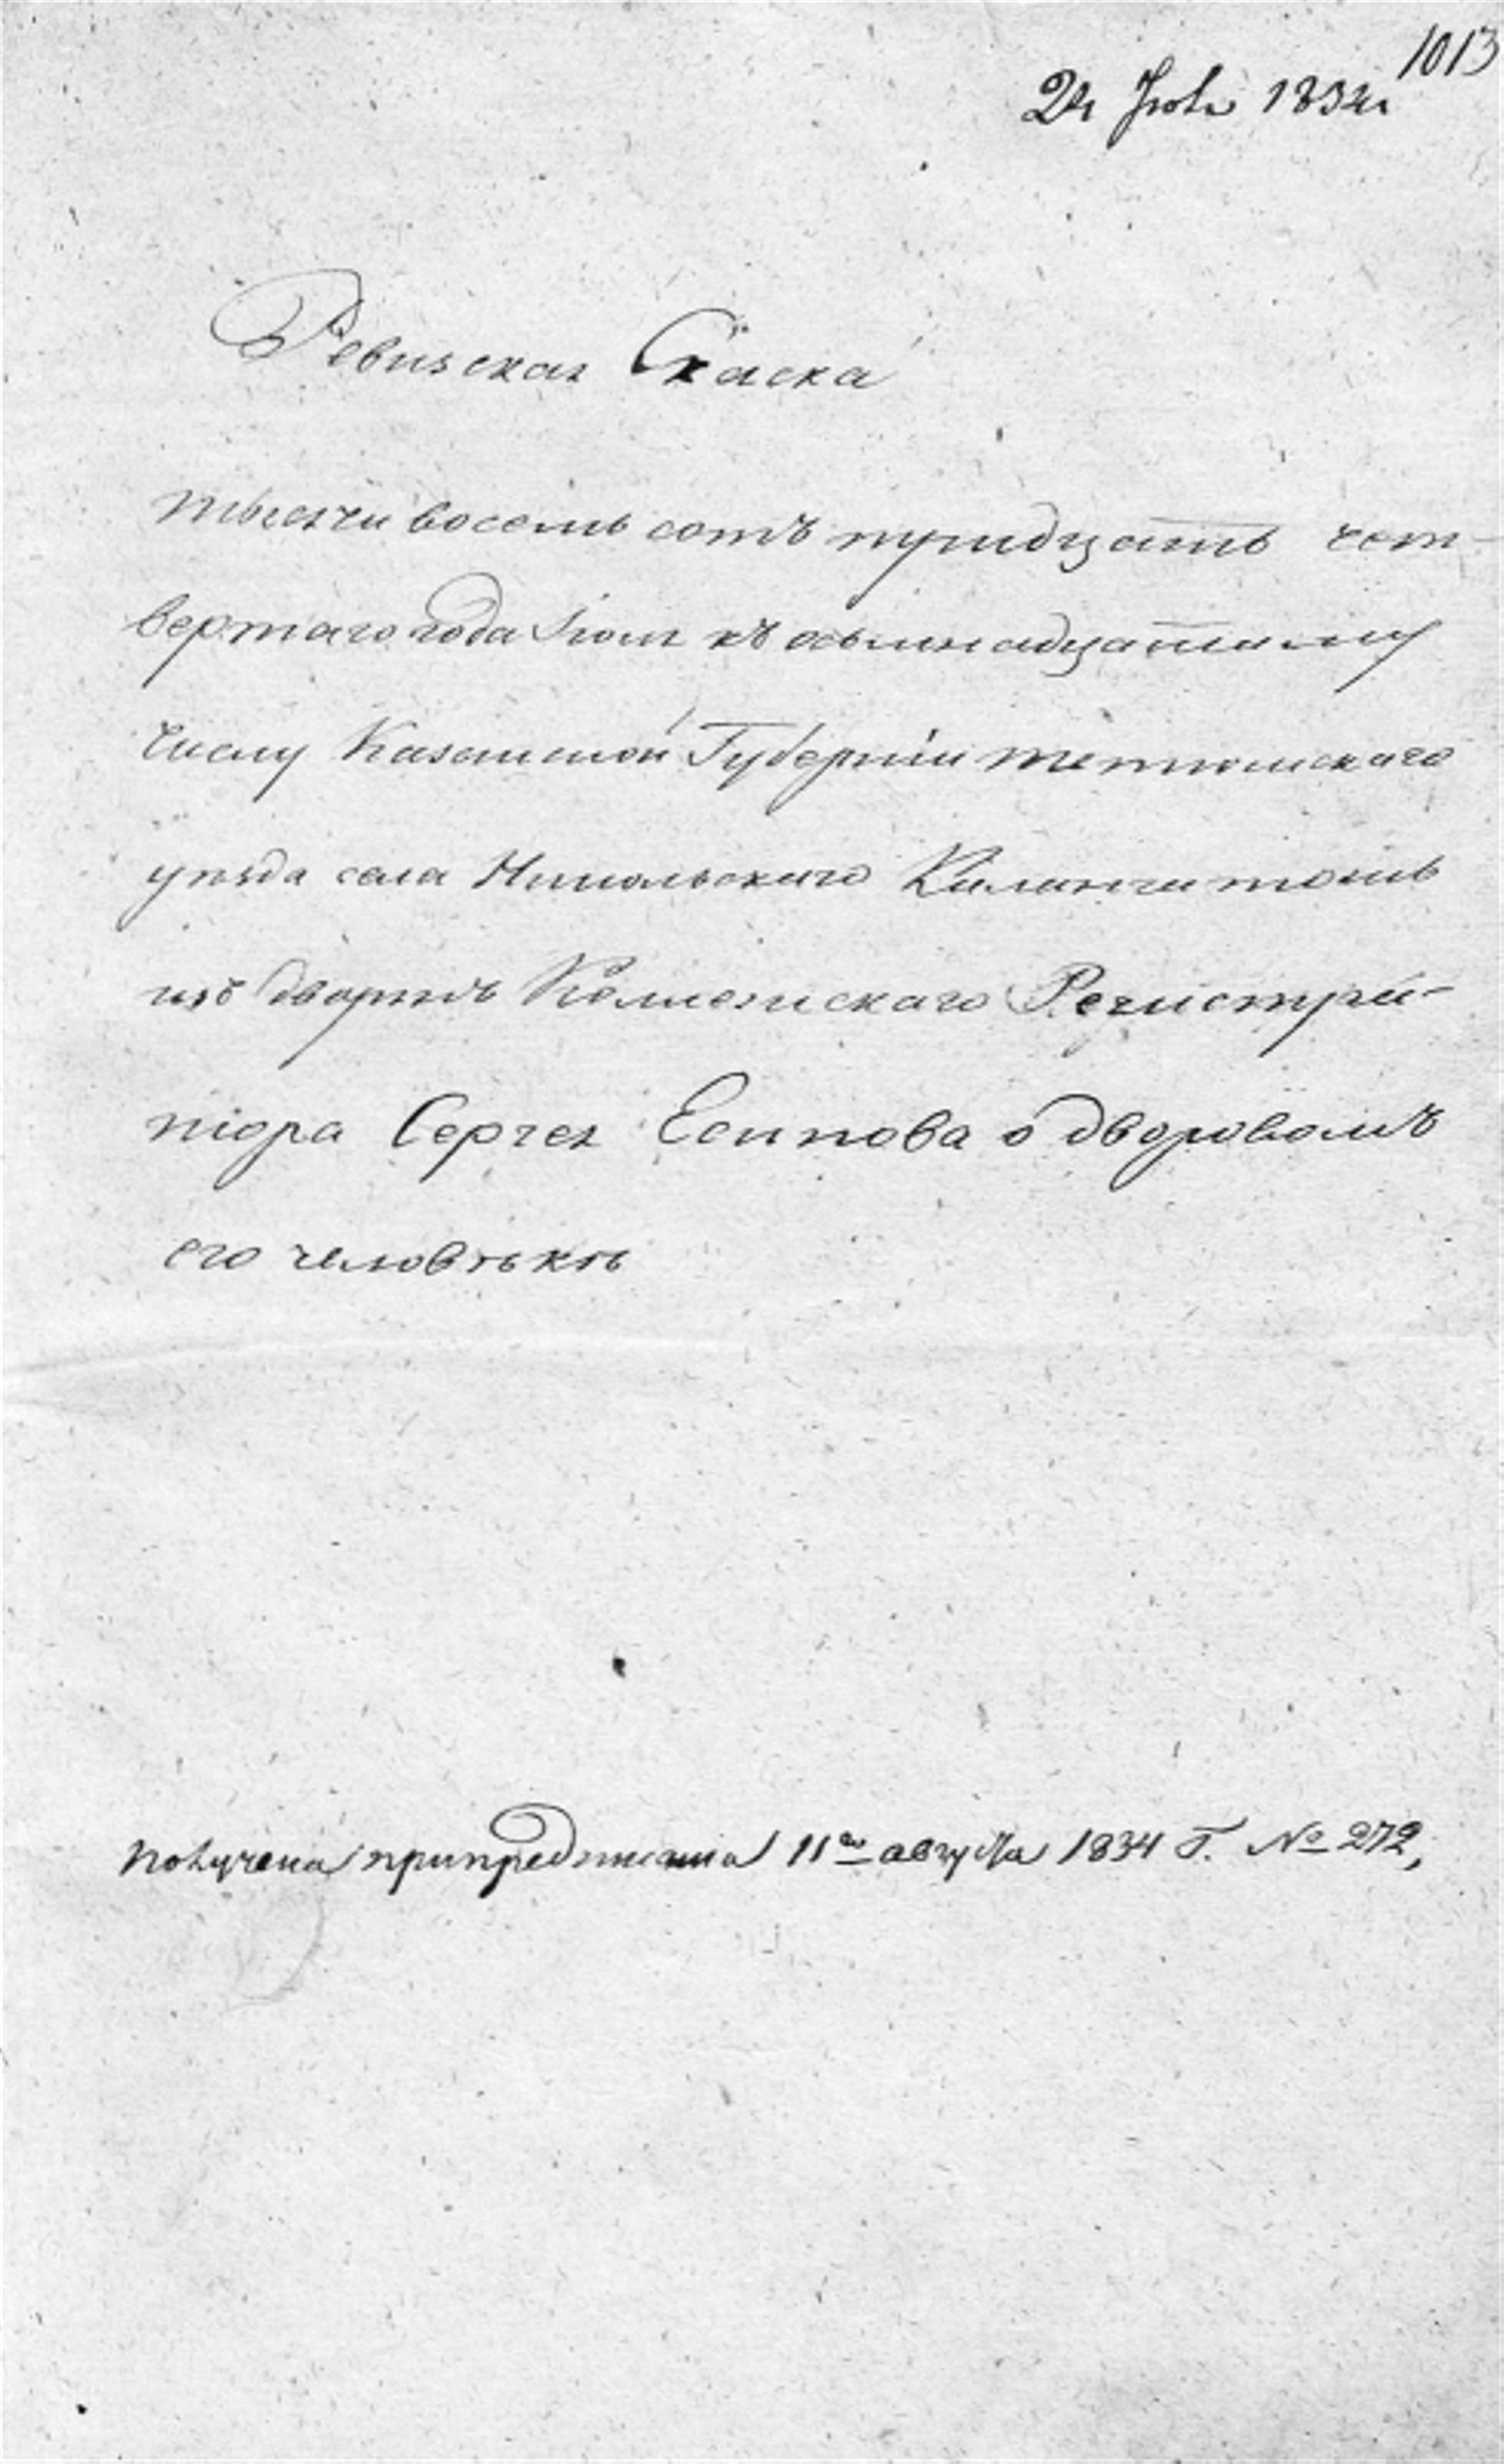 1013
24 Июль 1834
Ревизская Скаска
тысячи восемь сотъ тридцать чет-
вертаго года Іюля къ осьмнадцатому
числу Казанской Губерніи тетюшскаго
уѣзда села Никольскаго
изъ дворянъ Колежскаго Регистра-
тора Сергея Есипова о дворовомъ
его человѣкѣ
получена 11го августа 1834 Г. № 272,